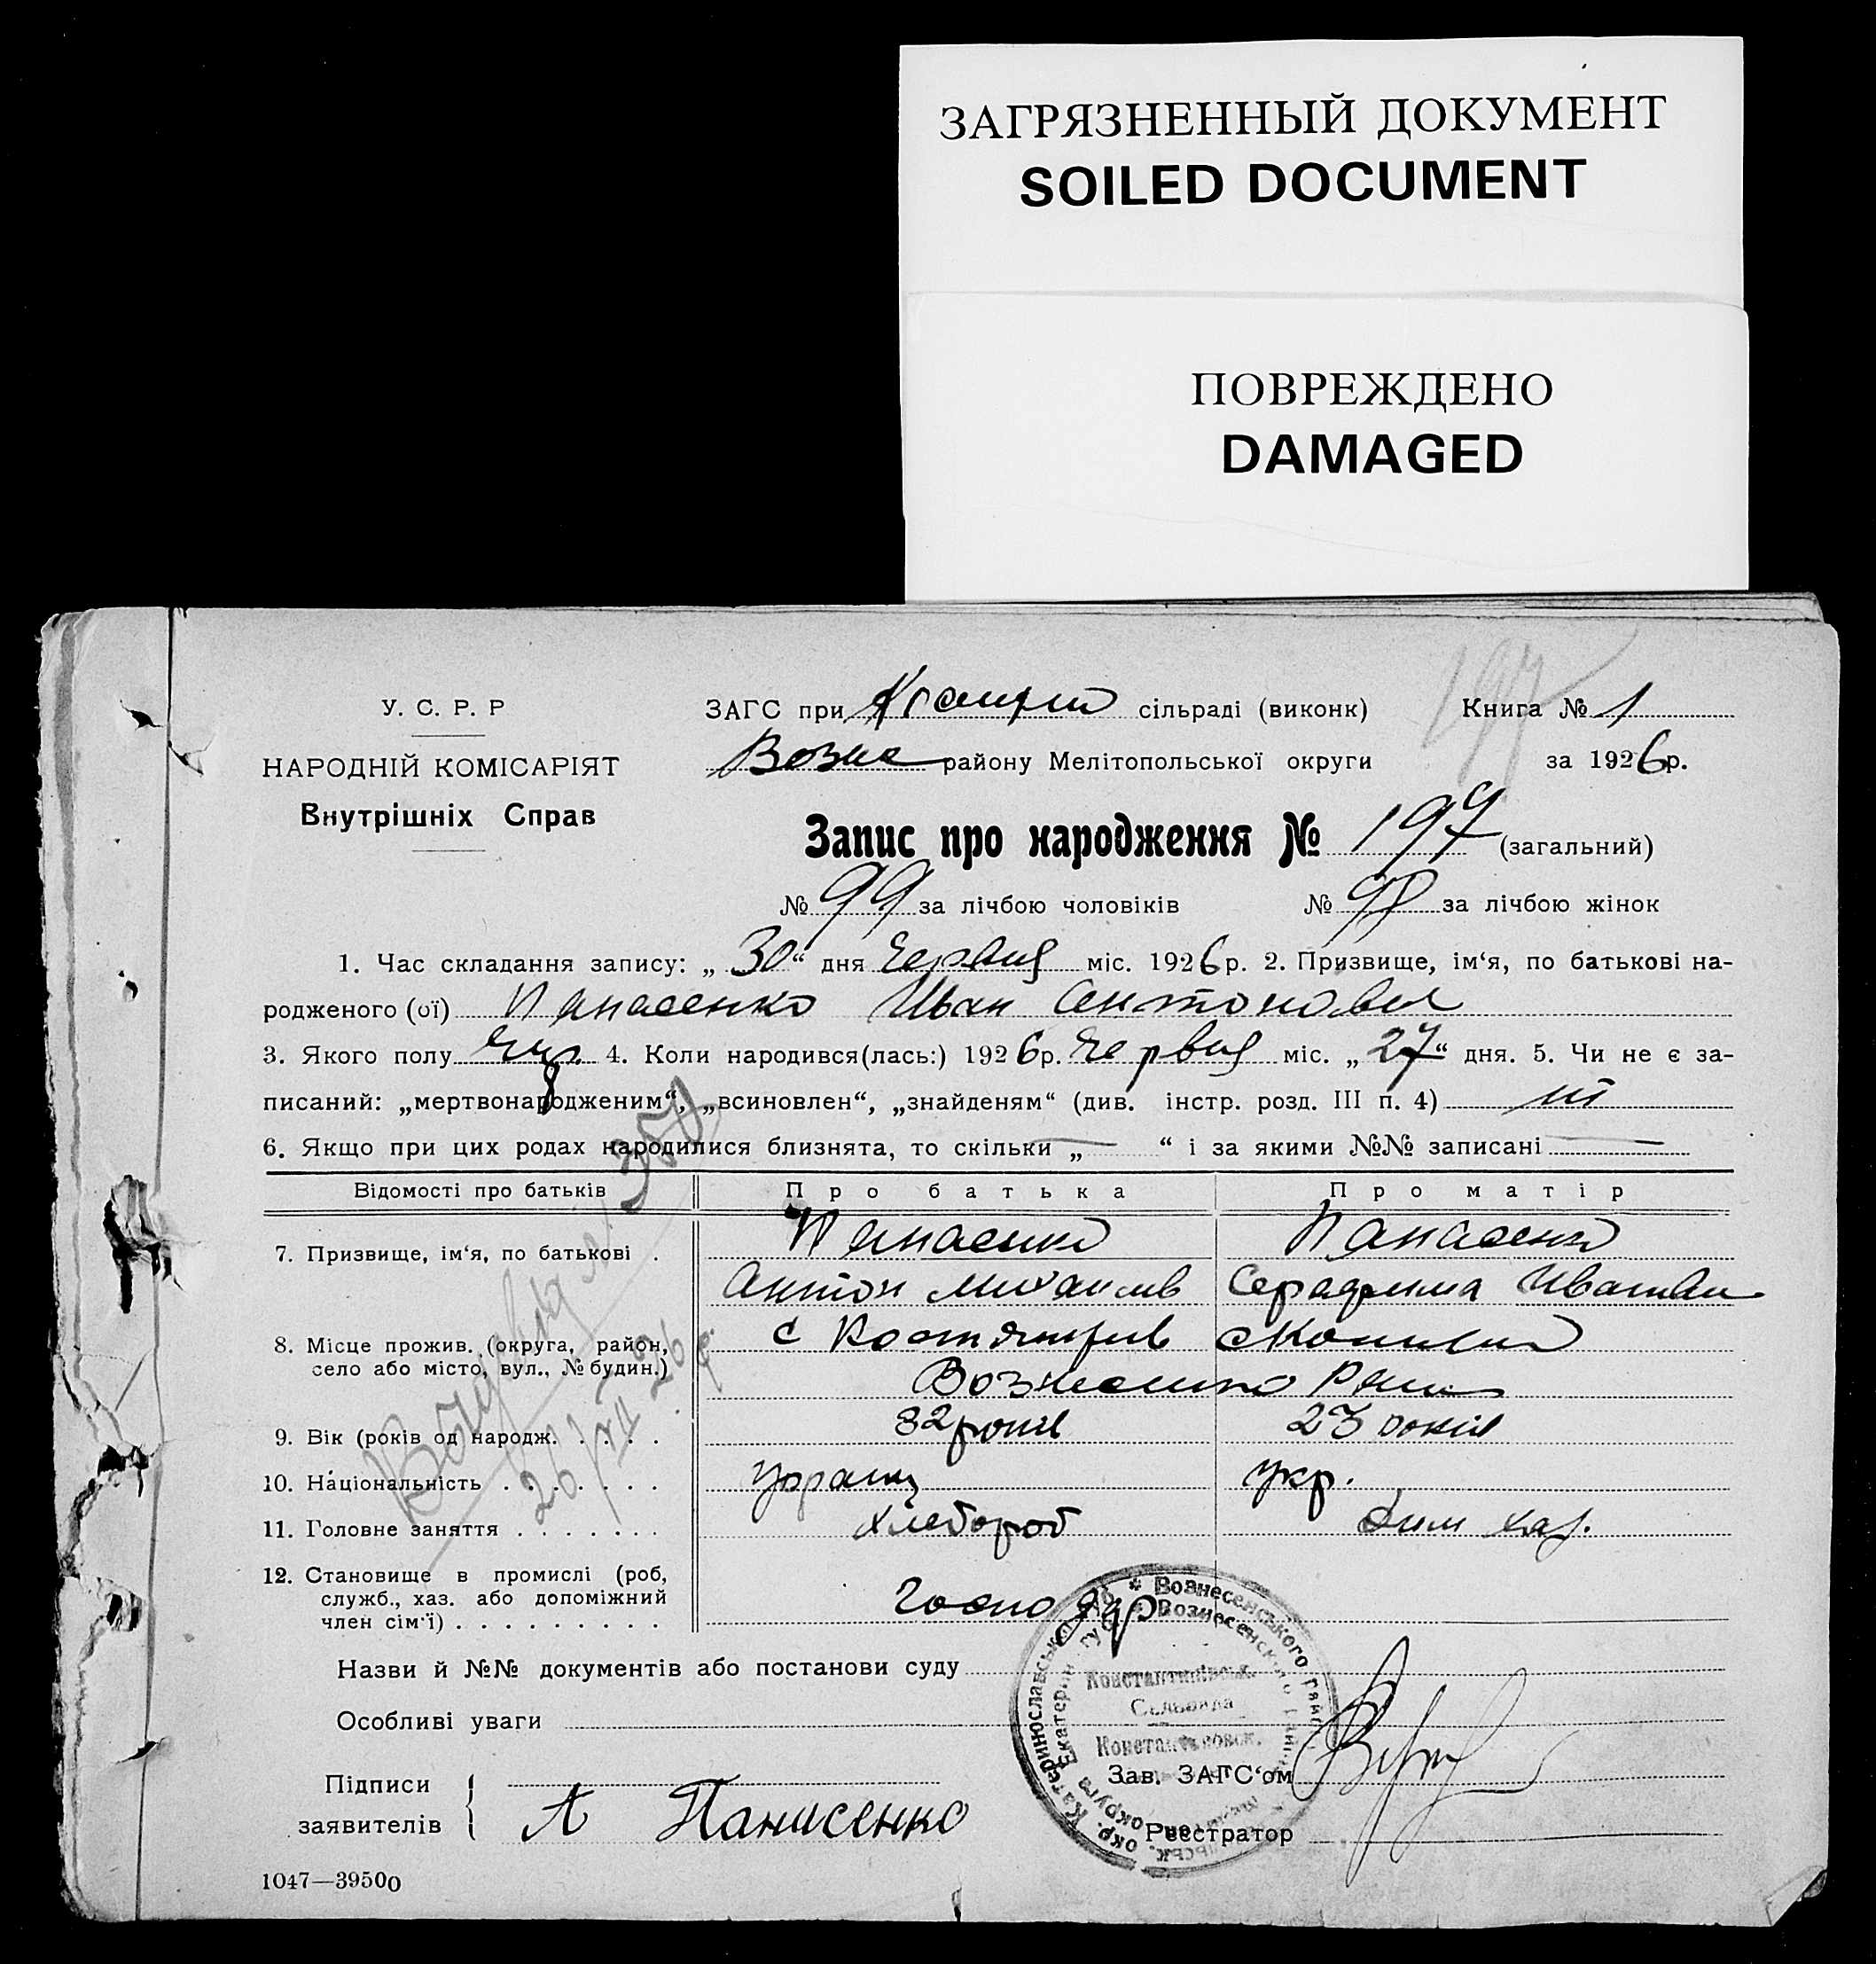 ЗАГРЯЗНЕННЫЙ ДОКУМЕНТ
SOILED DOCUMENT
ПОВРЕЖДЕНО
DAMAGED
197
У. С. Р. Р
НАРОДНІЙ КОМІСАРІЯТ
Внутрішніх Справ
ЗАГС при сільраді (виконк) Книга № 1
Возне району Мелітопольської округи за 1926р.
Запис про народження № 197 (загальний)
№ 99 за лічбою чоловіків № 98 за лічбою жінок
1. Час складання запису: „30“ дня Червня міс. 1926р. 2. Призвище, ім‘я, по батькові на-
родженого (ої) Панасенко Иван Антонович
3. Якого полу Чол. 4. Коли народився(лась:) 1926р. Червня міс. „27“ дня. 5. Чи не є за-
писаний: „мертвонародженим“, „всиновлен“, „знайденям“ (див. інстр. розд. III п. 4) ні
6. Якщо при цих родах народилися близнята, то скільки „—“ і за якими №№ записані —
Відомості про батьків Про батька Про матір
7. Призвище, ім‘я, по батькові . Панасенко Панасенко
Антон Михаилів Серафима Иванівн
8. Місце прожив. (округа, район,
село або місто, вул., № будин.)
с
Вознесенко Району
9. Вік (років од народж. . . . . 32 років 23 років
10. Національність . . . . . . . Украінц укр.
11. Головне заняття . . . . . . . хлебороб Дим хаз.
12. Становище в промислі (роб,
служб., хаз. або допоміжний
член сім‘ї) . . . . . . . . . Господар
26/XII 26 р
Назви й №№ документів або постанови суду
Особливі уваги
Вознесенського
Катеринославськ.
Константинівськ.
Сельрада
Константиновск.
Підписи
заявителів
А Панасенко
Зав. ЗАГС‘ом
Реєстратор
1047—39500